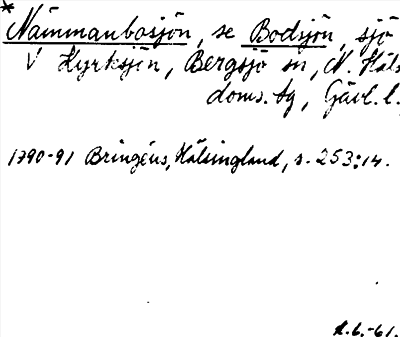 * Nämmanbosjön, se Bodsjön, sjö
V Kyrksjön, Bergsjö sn, N. Häls
doms. tg, Gävl. l.
1790-91 Bringéus, Hälsingland, s. 253:14.
6.-61.